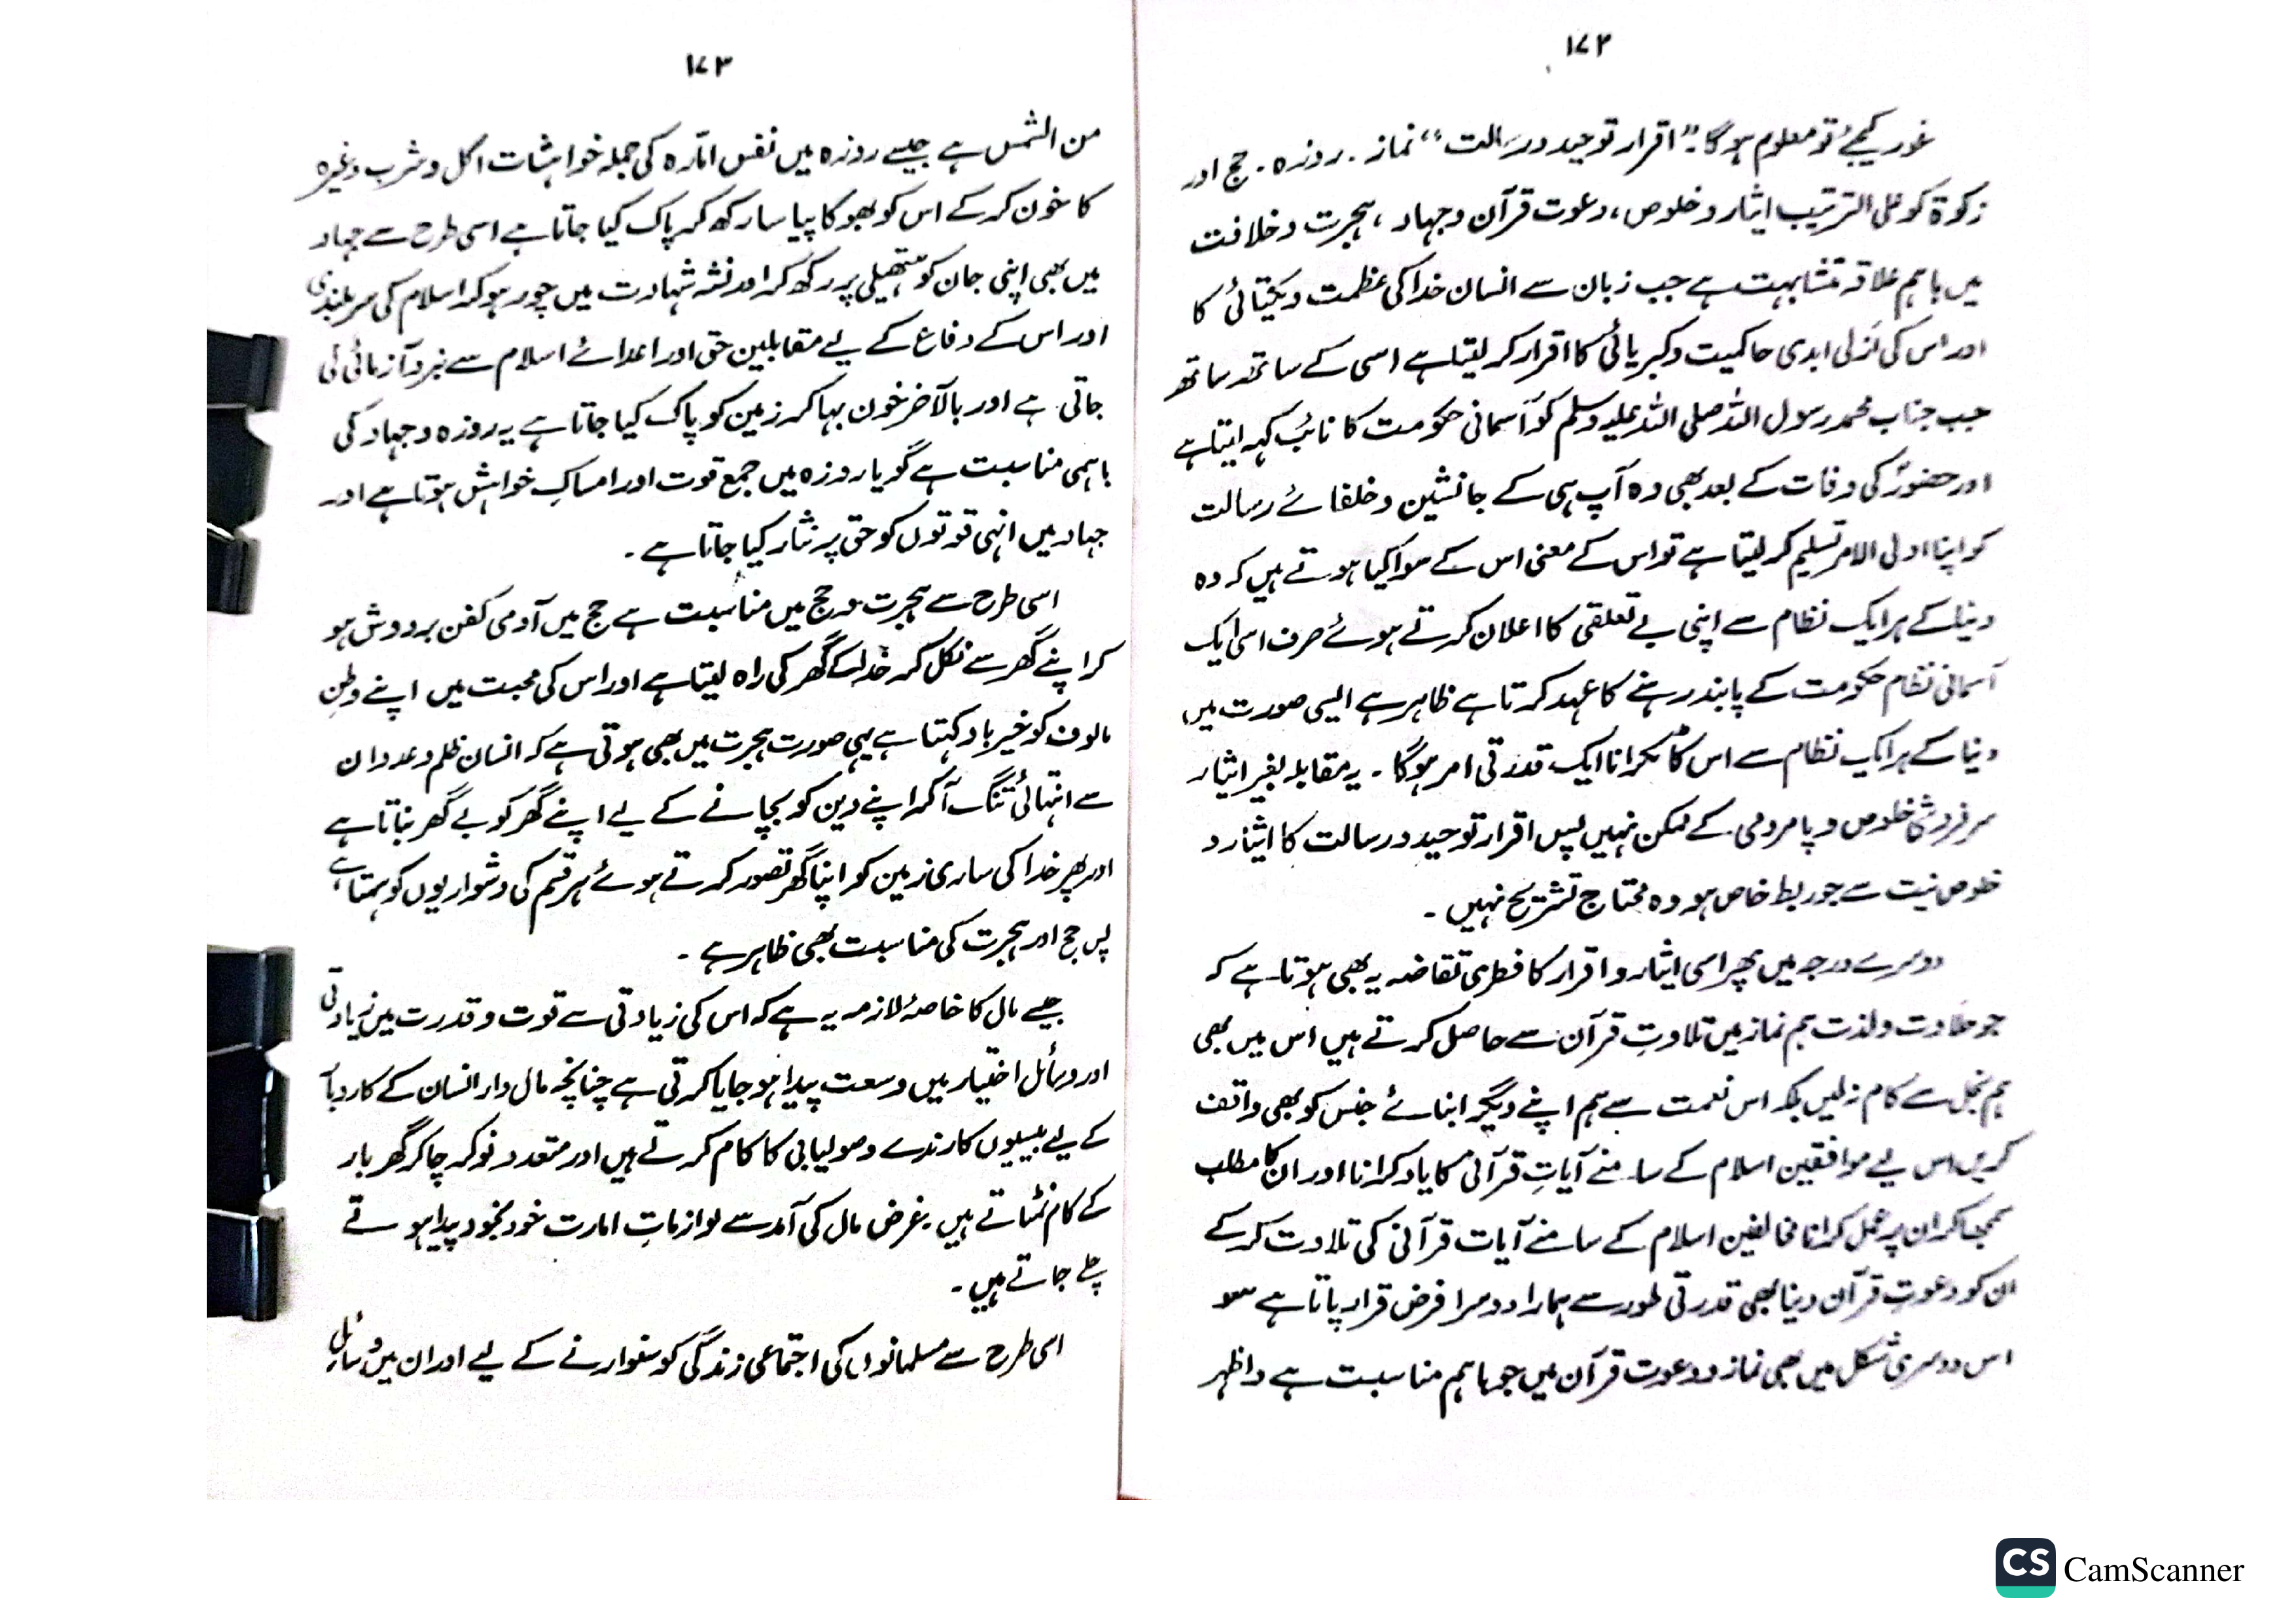 ۱۷۲
غور کیجئے تو معلوم ہوگا۔ ”اقرار توحید ورسالت“ نماز۔ روزہ۔ حج اور
زکوۃ کو علی الترتیب ایثار و خلوص، دعوت قرآن وجہاد، ہجرت وخلافت
میں باہم علاقہ تشابہت ہے جب زبان سے انسان خدا کی عظمت ویکتائی کا
اور اس کی ازلی ابدی حاکمیت وکبریائی کا اقرار کر لیتا ہے اسی کے ساتھ ساتھ
جب جناب محمد رسول اللہ صلی اللہ علیہ وسلم کو آسمانی حکومت کا نائب کہہ لیتا ہے
اور حضورؐ کی وفات کے بعد بھی وہ آپ ہی کے جانشین وخلفائے رسالت
کو اپنا اولی الامر تسلیم کر لیتا ہے تو اس کے معنی اس کے سوا کیا ہوتے ہیں کہ وہ
دنیا کے ہر ایک نظام سے اپنی بے تعلقی کا اعلان کرتے ہوئے صرف اسی ایک
آسمانی نظام حکومت کے پابند رہنے کا عہد کرتا ہے ظاہر ہے ایسی صورت میں
دنیا کے ہر ایک نظام سے اس کا ٹکرانا ایک قدرتی امر ہوگا۔ یہ مقابلہ بغیر ایثار
سرفروشی خلوص و پامردمی کے ممکن نہیں پس اقرار توحید ورسالت کا ایثار و
خلوص نیت سے جو ربط خاص ہو وہ محتاج تشریح نہیں۔
دوسرے درجہ میں پھر اسی ایثار و اقرار کا فطری تقاضہ یہ بھی ہوتا ہے کہ
جو حلاوت ولذت ہم نماز میں تلاوتِ قرآن سے حاصل کرتے ہیں اس میں بھی
ہم بخل سے کام نہ لیں بلکہ اس نعمت سے ہم اپنے دیگر ابنائے جنس کو بھی واقف
کریں اس لیے موافقین اسلام کے سامنے آیاتِ قرآنی کا یاد کرانا اور ان کا مطلب
سمجھا کر ان پر عمل کرانا مخالفین اسلام کے سامنے آیات قرآنی کی تلاوت کر کے
ان کو دعوتِ قرآن دینا بھی قدرتی طور سے ہمارا دوسرا فرض قرار پاتا ہے سو
اس دوسری شکل میں بھی نماز ودعوت قرآن میں جو باہم مناسبت ہے واظہر
۱۷۳
من الشمس ہے جیسے روزہ میں نفس امّارہ کی جملہ خواہشات اکل وشرب وغیرہ
کا خون کر کے اس کو بھوکا پیاسا رکھ کر پاک کیا جاتا ہے اسی طرح سے جہاد
میں بھی اپنی جان کو ہتھیلی پر رکھ کر اور نشہ شہادت میں چور ہو کر اسلام کی سربلندی
اور اس کے دفاع کے لیے مقابلین حق اور اعدائے اسلام سے نبرد آزمائی کی
جاتی ہے اور بالآخر خون بہا کر زمین کو پاک کیا جاتا ہے یہ روزہ وجہاد کی
باہمی مناسبت ہے گویا روزہ میں جمع قوت اور امساکِ خواہش ہوتا ہے اور
جہاد میں انہی قوتوں کو حق پر نثار کیا جاتا ہے۔
اسی طرح سے ہجرت وحج میں مناسبت ہے حج میں آدمی کفن بردوش ہو
کر اپنے گھر سے نکل کر خدا کے گھر کی راہ لیتا ہے اور اس کی محبت میں اپنے وطنِ
مالوف کو خیرباد کہتا ہے یہی صورت ہجرت میں بھی ہوتی ہے کہ انسان ظلم وعدوان
سے انتہائی تنگ آ کر اپنے دین کو بچانے کے لیے اپنے گھر کو بے گھر بناتا ہے
اور پھر خدا کی ساری زمین کو اپنا گھر تصور کرتے ہوئے ہر قسم کی دشواریوں کو سہتا ہے
پس حج اور ہجرت کی مناسبت بھی ظاہر ہے۔
جیسے مال کا خاصۂ لازمہ یہ ہے کہ اس کی زیادتی سے قوت وقدرت میں زیادتی
اور وسائل اختیار میں وسعت پیدا ہو جایا کرتی ہے چنانچہ مال دار انسان کے کاروبار
کے لیے بیسیوں کارندے وصولیابی کا کام کرتے ہیں اور متعدد نوکر چاکر گھر بار
کے کام نمٹاتے ہیں۔ غرض مال کی آمد سے لوازماتِ امارت خود بخود پیدا ہوتے
چلے جاتے ہیں۔
اسی طرح سے مسلمانوں کی اجتماعی زندگی کو سنوارنے کے لیے اور ان میں وسائل
CS CamScanner